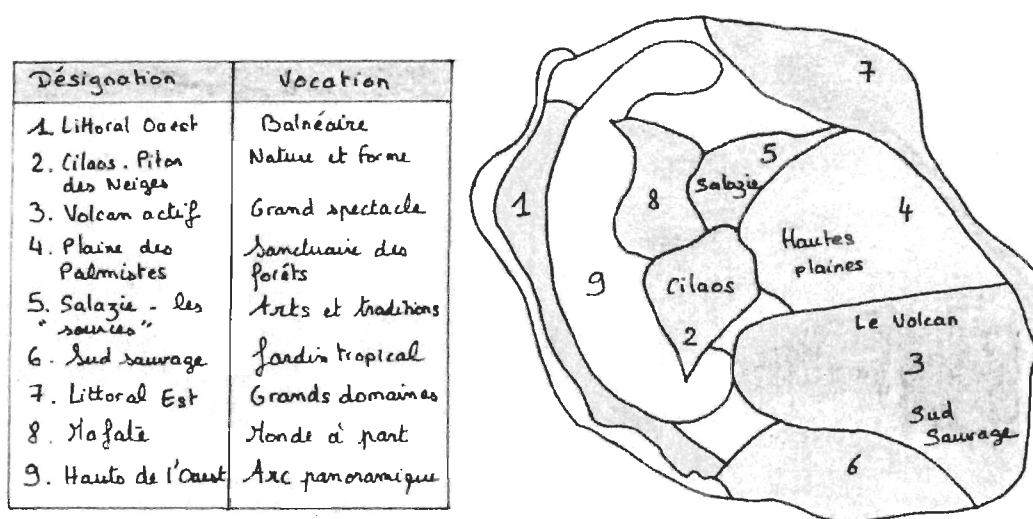 Désignation Vocation
1 Littoral Ouest Balnéaire
2. Cilaos. Piton Nature et forme
des Neiges
3. Volcan actif Grand spectacle
4. Plaine des Sanctuaire des
Palmistes forêts
5. Salazie - les Arts et traditions
"sources"
6. Sud sauvage Jardin tropical
7. Littoral Est Grands domaines
8. Mafate Monde à part
9. Hauts de l'Ouest Arc panoramique
7
5
Salazie
1
8
4
Hautes
plaines
9
Cilaos
2
Le Volcan
3
Sud
Sauvage
6